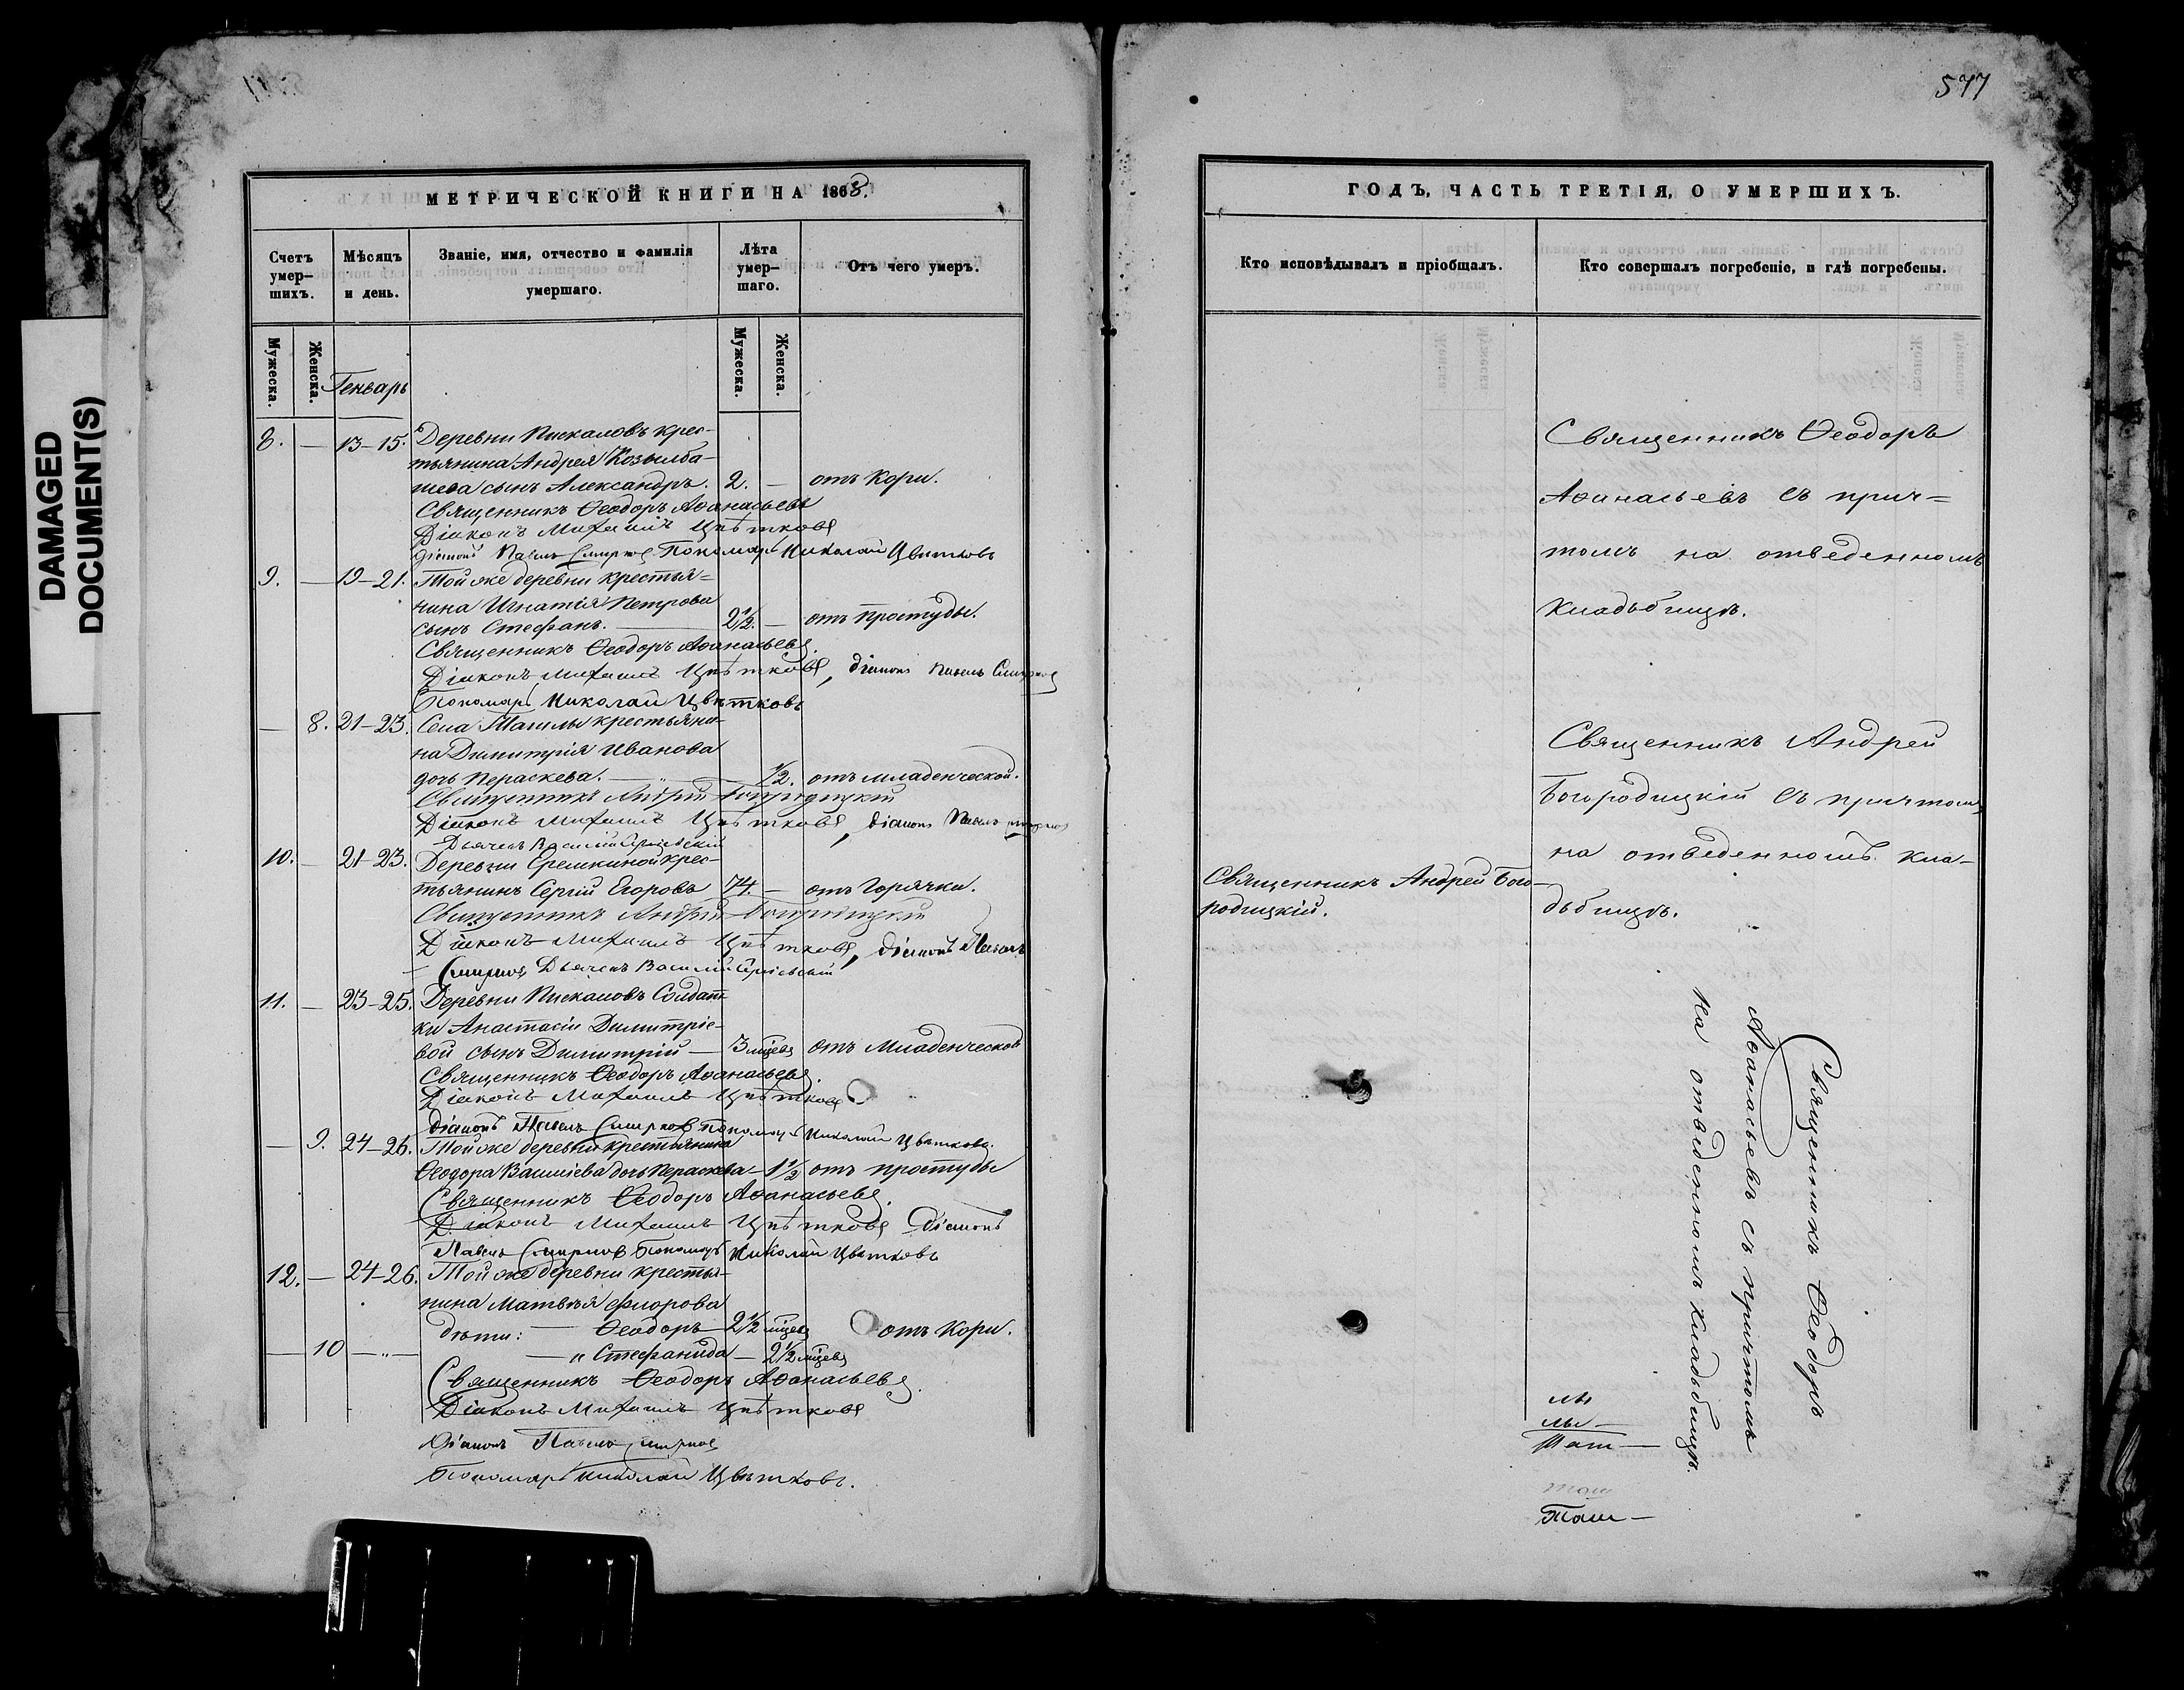 DAMAGED
DOCUMENT(S)
МЕТРИЧЕСКОЙ КНИГИ НА 1868.
Счетъ умер-шихъ.
Мѣсяцъ и день.
Званіе, имя, отчество и фамилія умершаго.
Лѣта умер-шаго.
Отъ чего умеръ.
Мужеска.
Женска.
Генварь
Мужеска.
Женска.
8. — 13–15. Деревни Пискаловъ крес-
тьянина Андрея Козылба-
шева сынъ Александръ. 2. — отъ Кори.
Священникъ Ѳеодоръ Аѳанасьевъ
Діаконъ Михаилъ Цвѣтковъ
діаконъ Павелъ Смирновъ Пономарь Николай Цвѣтковъ
9. — 19–21. Той же деревни крестья=
нина Игнатія Петрова
сынъ Стефанъ. 2½. — отъ простуды.
Священникъ Ѳеодоръ Аѳанасьевъ.
Діаконъ Михаилъ Цвѣтковъ, діаконъ Павелъ Смирновъ
Пономарь Николай Цвѣтковъ
— 8. 21–23. Села Тагилы крестьяни-
на Димитрія Иванова
дочь Параскева. — „ — ½. отъ младенческой.
Священникъ Андрей Богородицкій
Діаконъ Михаилъ Цвѣтковъ, діаконъ Павелъ Смирновъ
Дьячекъ Василій
10. — 21–23. Деревни Еремкиной крес-
тьянинъ Сергій Егоровъ 74. — отъ Горячки.
Священникъ Андрей Богородицкій
Діаконъ Михаилъ Цвѣтковъ, діаконъ Павелъ
Смирновъ Дьячекъ Василій
11. — 23–25. Деревни Пискаловъ Солдат-
ки Анастасіи Димитріе-
вой сынъ Димитрій — 3 мѣсяц отъ Младенческой
Священникъ Ѳеодоръ Аѳанасьевъ.
Діаконъ Михаилъ Цвѣтковъ
діаконъ Павелъ Смирновъ Пономарь Николай Цвѣтковъ.
— 9. 24–26. Той же деревни крестьянина
Ѳеодора Василіева дочь Параскева — 1½ отъ простуды
Священникъ Ѳеодоръ Аѳанасьевъ.
Діаконъ Михаилъ Цвѣтковъ Діаконъ
Павелъ Смирновъ Пономарь Николай Цвѣтковъ
12. — 24–26. Той же деревни крестья-
нина Матвѣя Флорова
дѣти: — Ѳеодоръ 2½ мѣсяц отъ Кори.
— 10 — „ — — „ Стефанида — 2½ мѣсяц
Священникъ Ѳеодоръ Аѳанасьевъ.
Діаконъ Михаилъ Цвѣтковъ
Діаконъ Павелъ Смирновъ
Пономарь Николай Цвѣтковъ.
577
ГОДЪ, ЧАСТЬ ТРЕТІЯ, О УМЕРШИХЪ.
Кто исповѣдывалъ и пріобщалъ.
Кто совершалъ погребеніе, и гдѣ погребены.
Священникъ Ѳеодоръ
Аѳанасьевъ съ прич=
томъ на отведенномъ
кладбищѣ.
Священникъ Андрей
Богородицкій съ причтомъ
на отведенномъ кла-
дбищѣ.
Священникъ Андрей Бого-
родицкій.
Священникъ Ѳеодоръ
Аѳанасьевъ съ причтомъ
на отведенномъ кладбищѣ.